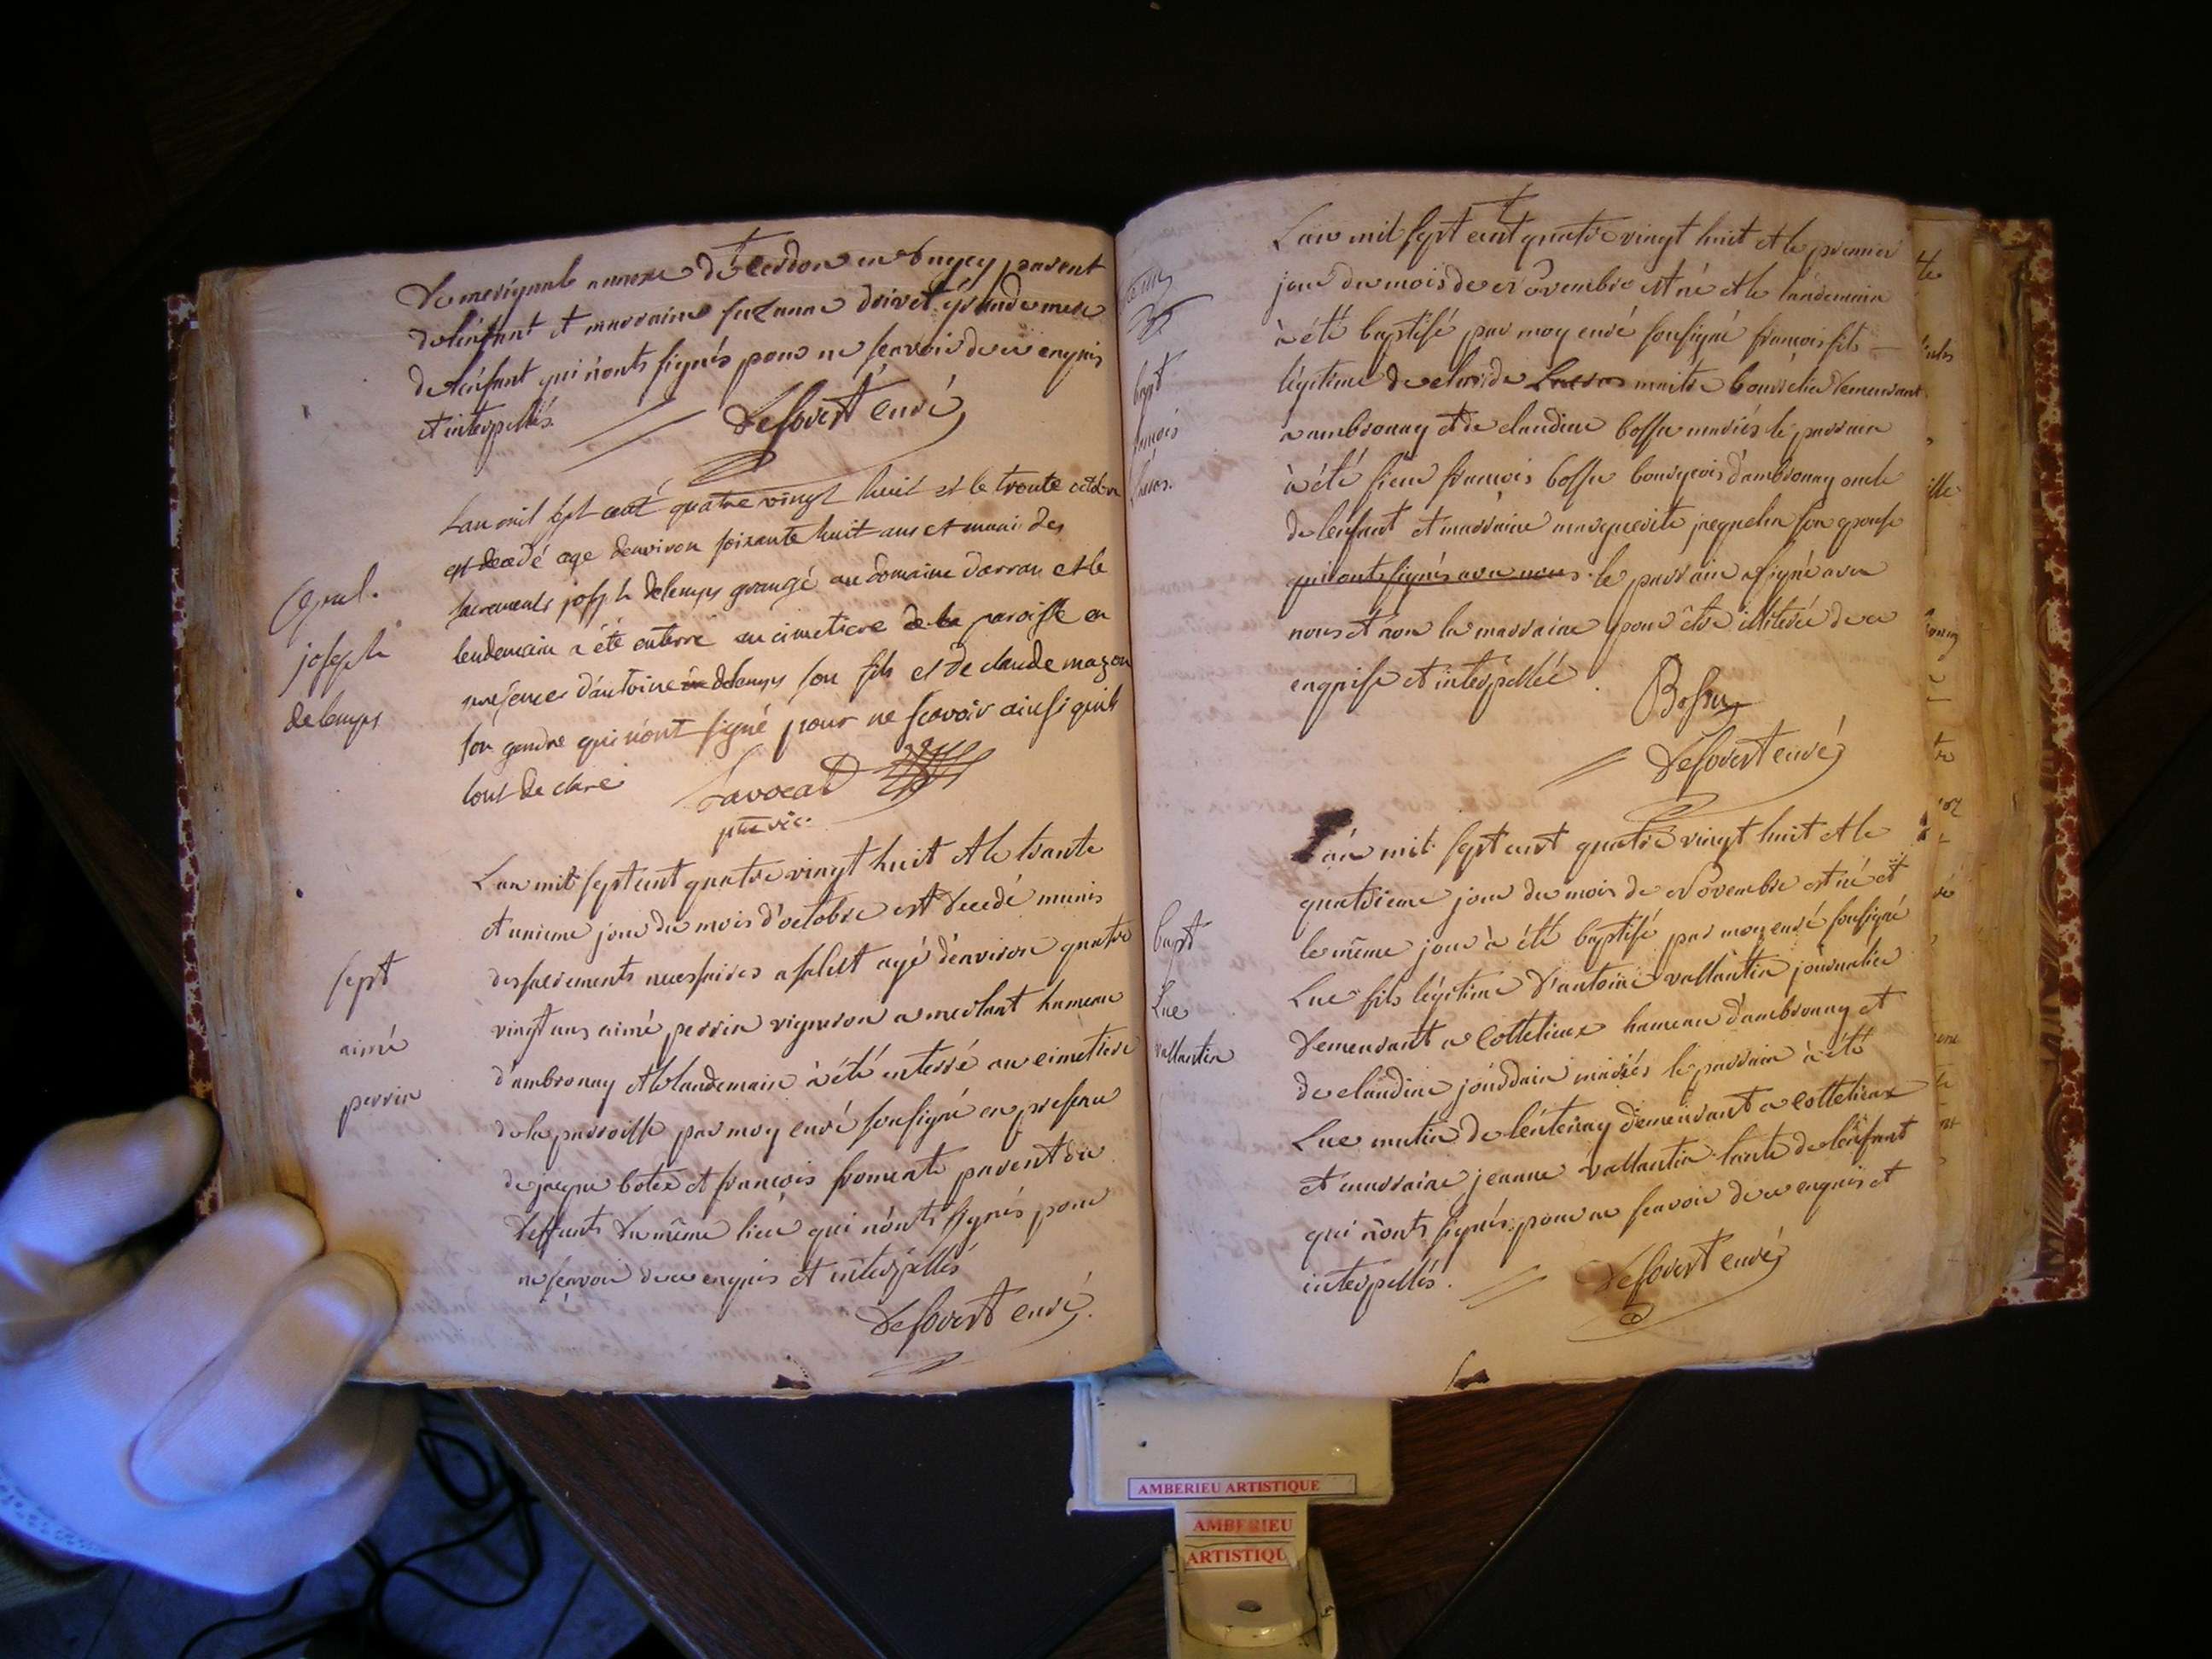 de merignale annexe de Cerdon en bugey parent
de lenfant et marraine suzanne drivet grande mere
de lenfant qui n'onts signés pour ne sçavoir de ce enquis
et interpellés.
Desovert curé
L'an mil sept cent quatre vingt huit et le trente octobre
est decedé age denviron soixante huit ans et muni des
Sepul.
sacrements joseph delemps grangé au domaine darran et le
joseph
lendemain a été enterré au cimetiere de la paroisse en
delemps
presences d'antoine delemps son fils et de claude mazon
son gendre qui n'ont signé pour ne scavoir ainsi quils
l'ont declaré
Lavocat
ptre vic.
L'an mil sept cent quatre vingt huit et le trante
et unieme jour du mois d'octobre est decedé munis
sept
des sacrements necessaires a salut agé d'environ quatre
aimé
vingt ans aimé perrin vigneron a merlant hameau
perrin
d'ambronay et le landemain à été enterré au cimetiere
de la parroisse par moy curé sousigné en presence
de jacque botex et françois fromente parent du
deffunts du même lieu qui n'onts signés pour
ne sçavoir de ce enquis et interpellés
Desovert curé.
L'an mil sept cent quatre vingt huit et le premier
jour du mois de Novembre est né et le landemain
à été baptisé par moy curé sousigné françois fils
bapt
légitime de claude Lucas maitre bourelier demeurant
a ambronay et de claudine bossu mariés le parrain
à été sieur françois bossu bourgeois d'ambronay oncle
de lenfant et marraine marguerite jacquelin son epouse
qui ont signés avec nous le parrain a signé avec
nous et non la marraine pour être illitérée de ce
enquise et interpellée.
Bossu
Desovert curé
L'an mil sept cent quatre vingt huit et le
quatrieme jour du mois de Novembre est né et
bapt
le même jour à été baptisé par moy curé sousigné
Luc
Luc fils légitime d'antoine vallantin journalier
vallantin
demeurant a Cottelieux hameau d'ambronay et
de claudine jourdain mariés le parrain à été
Luc mutin de lentenay demeurant a Cottelieux
et marraine jeanne vallantin tante de lenfant
qui n'onts signés pour ne sçavoir de ce enquis et
interpellés.
Desovert curé
AMBERIEU ARTISTIQUE
AMBERIEU
ARTISTIQU